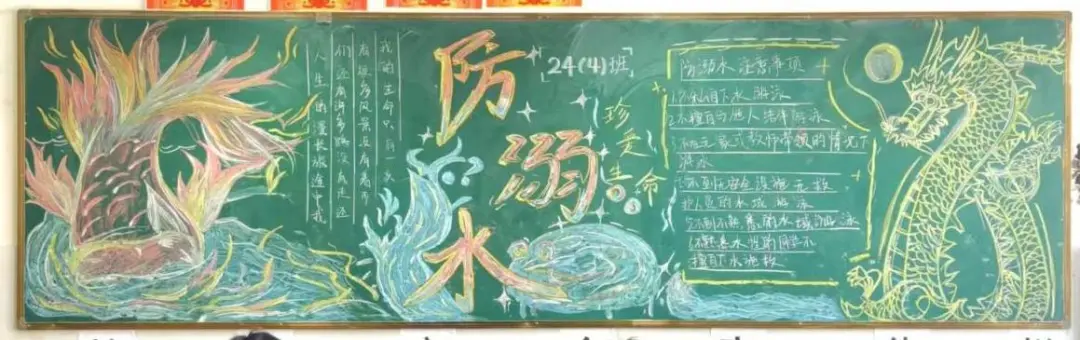 我的生命只有一次
有很多风景没有看
们还有许多路没有走还
人生的漫长旅途中我
防溺水
24(4)班
珍爱生命
防溺水注意事项
1不私自下水游泳
2不擅自与他人结伴游泳
不在无家长或教师带领的情况下
游泳
不到无安全设施无救
护人员的水域游泳
5不到不熟悉的水域游泳
6不熟悉水性的同学不
擅自下水施救